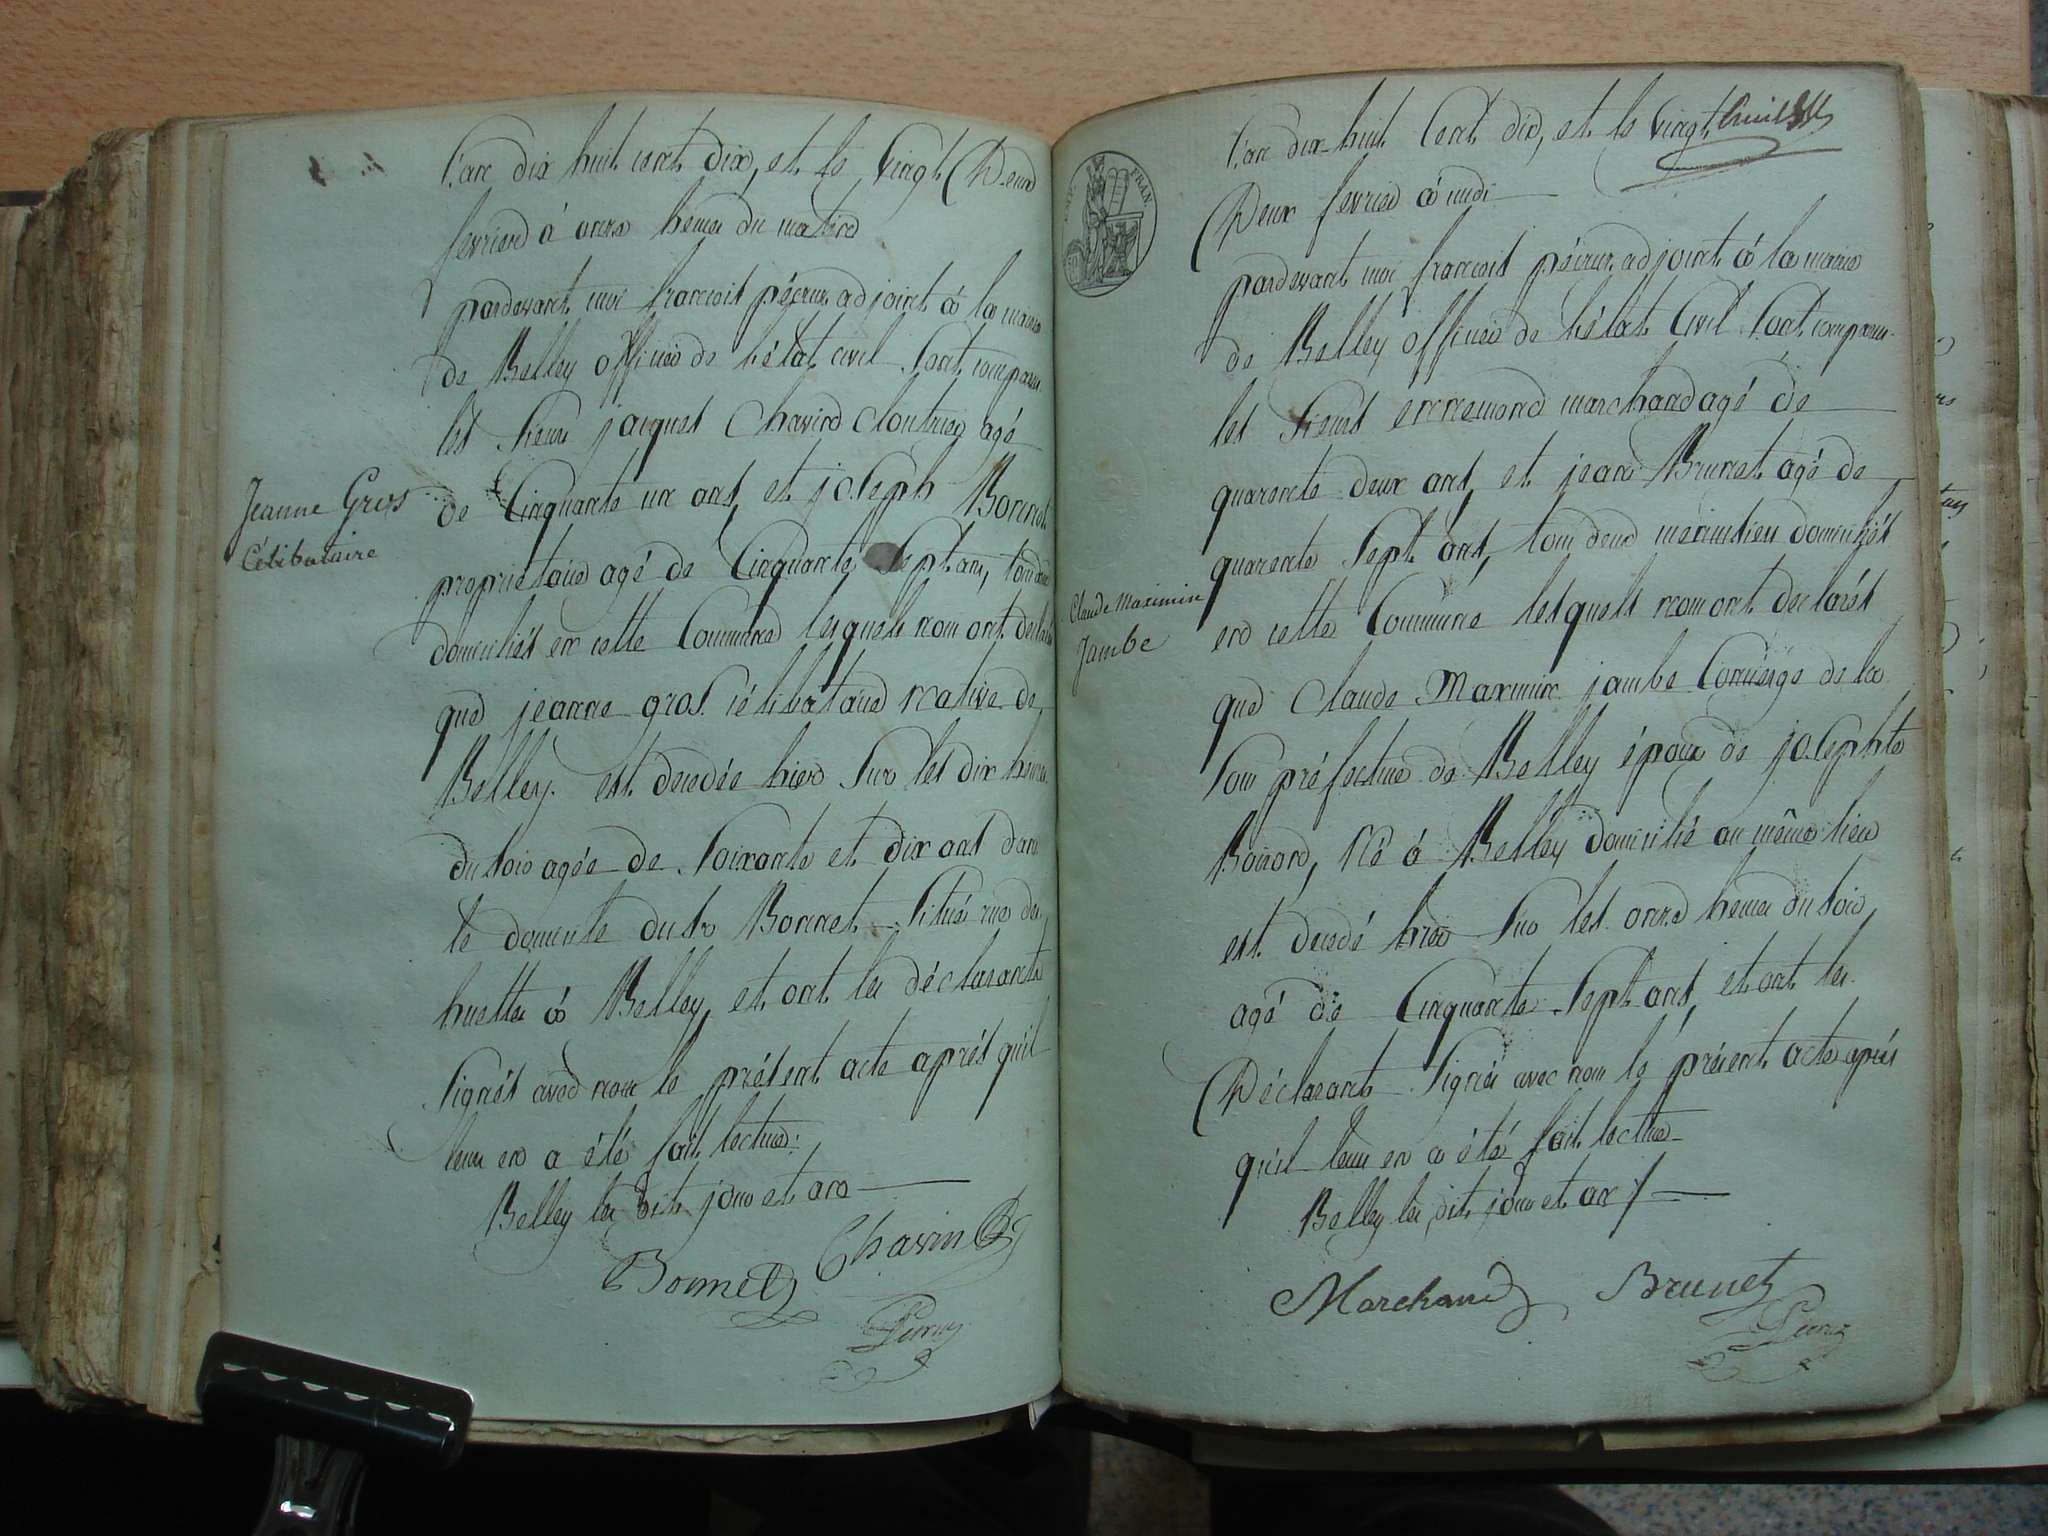 l'an dix huit cent dix, et le vingt Deux
fevrier à onze heures du matin
pardevant moi francois péçeux adjoint à la mairie
de Belley officier de l'état civil sont comparu
les sieurs jaques Chavin cloutrier agé
Jeanne Gros
Célibataire
de Cinquante un ans, et joseph Bonnet
proprietaire agé de Cinquante sept ans, tous deux
domiciliés en cette Commune lesquels nous ont declarés
que jeanne gros célibataire native de
Belley est decedée hier sur les dix heures
du soir agée de soixante et dix ans dans
le domicile du sr Bonnet situé rue des
huettes à Belley, et ont les déclarants
signés avec nous le présent acte aprés qu'il
leur en a été fait lecture:
Belley les dit jour et an
Bonnet Chavin
EMP. FRAN.
l'an dix huit Cent dix, et le vingt
Deux fevrier à midi
pardevant moi francois péçeux adjoint à la mairie
de Belley officier de l'état Civil sont comparu
les sieurs ennemond marchand agé de
quarente deux ans, et jean Brunet agé de
quarente sept ans, tous deux menuisiers domiciliés
Claude Maximin
Jambe
en cette Commune lesquels nous ont declarés
que Claude Maximin jambe Concierge de la
sous préfecture de Belley époux de josephte
né à Belley domicilié au même lieu
est decedé hier sur les onze heures du soir
agé de Cinquante sept ans, et ont les
Déclarants signés avec nous le présent acte aprés
qu'il leur en a été fait lecture
Belley les dit jour et an
Marchand Brunet